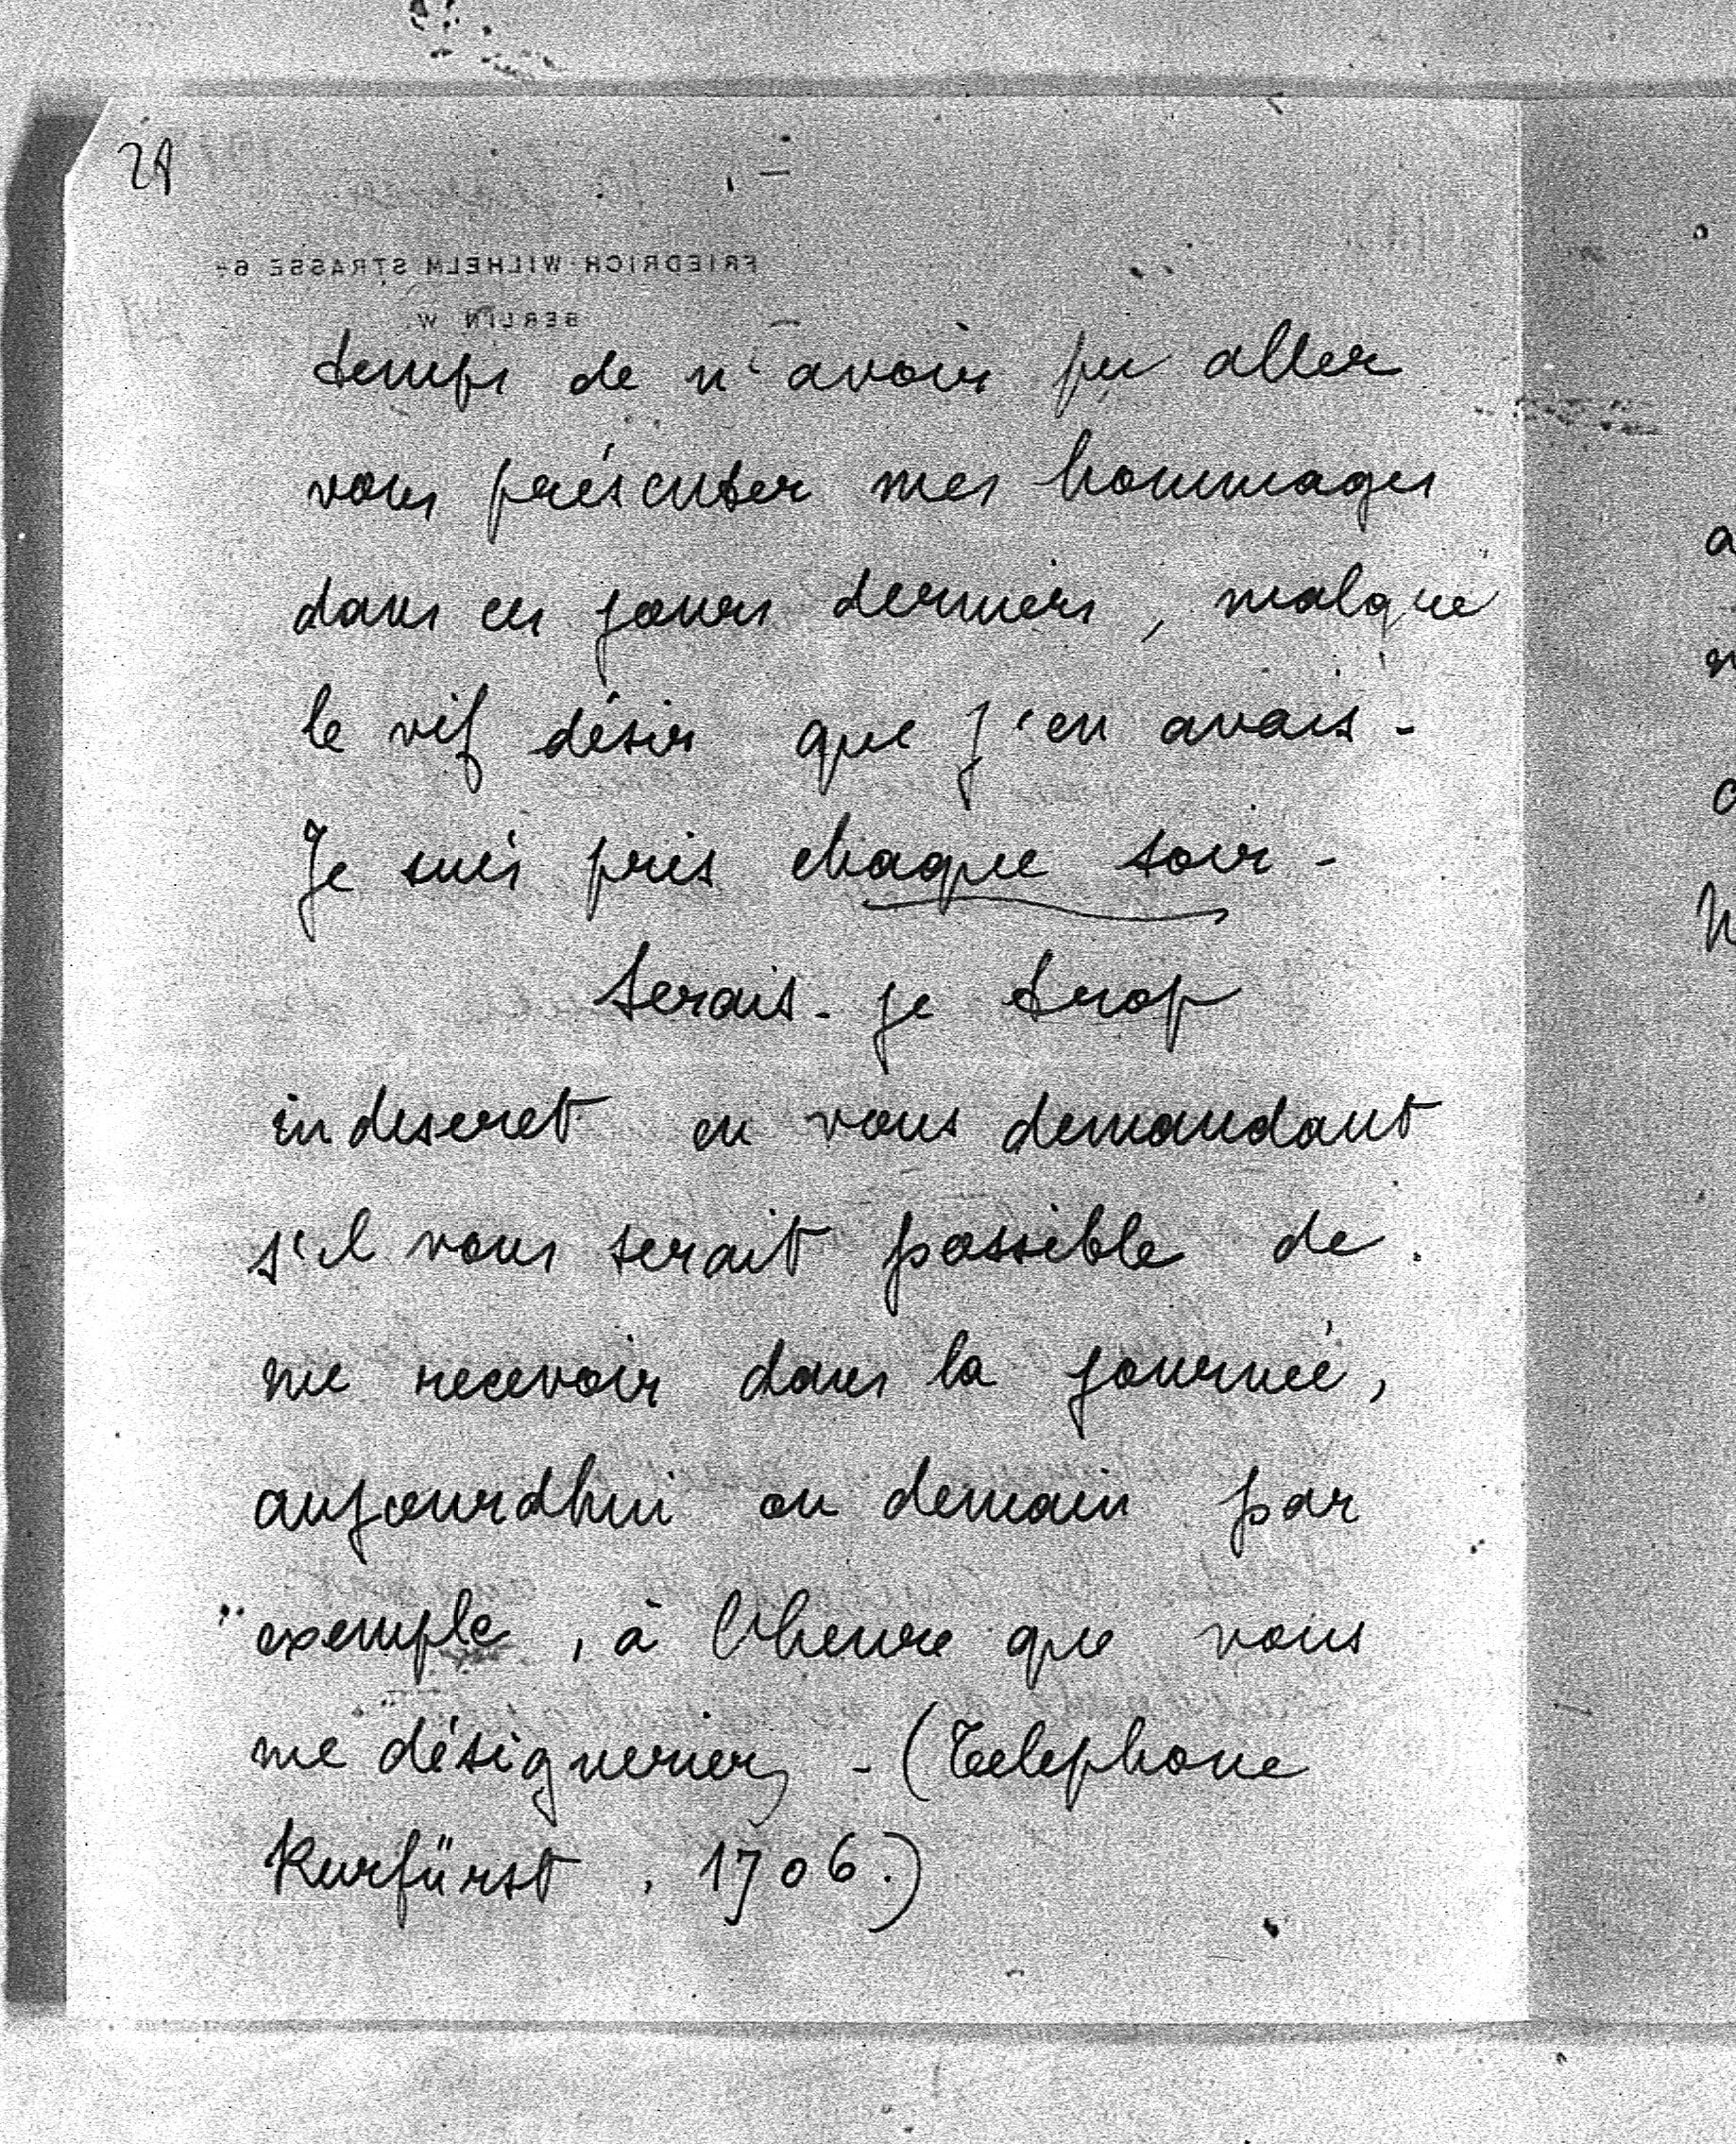 28
FRIEDRICH-WILHELM STRASSE 6
BERLIN W.
temps de n'avoir pu aller
vous présenter mes hommages
dans ces jours derniers, malgré
le vif désir que j'en avais -
Je suis pris chaque soir -
Serais-je trop
indiscret en vous demandant
s'il vous serait possible de
me recevoir dans la journée,
aujourdhui ou demain par
exemple, à l'heure que vous
me désigneriez - (Telephone
Kurfürst. 1706.)